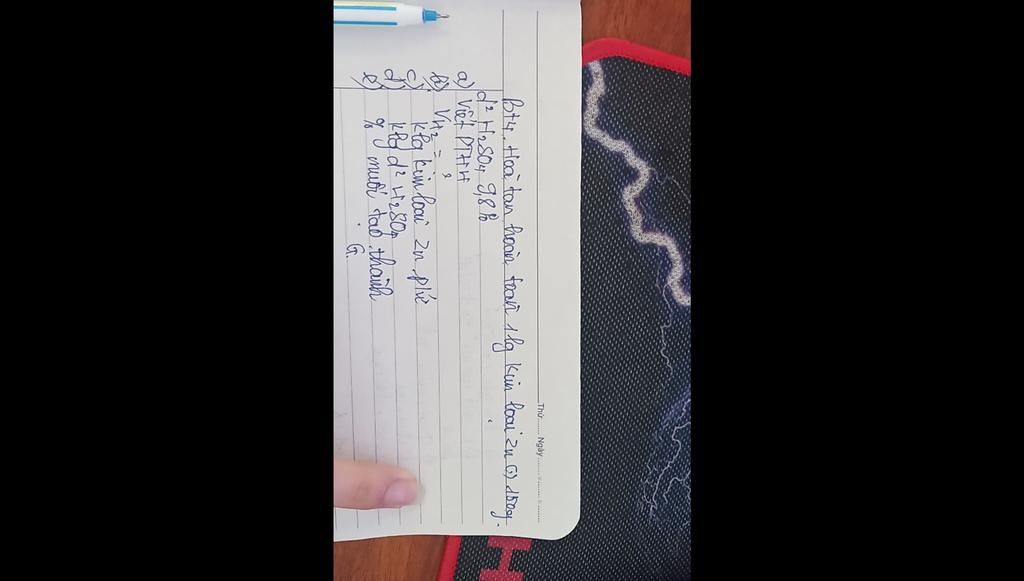 Thứ...... Ngày ........-........-........
Bt4. Hoà tan hoàn toàn 1 lg kim loại Zn (=) 150g
d² H₂SO₄ 9,8%
a) Viết PTHH
b) VH₂ = ?
c) klg kim loại Zn p/ứ
d) klg d² H₂SO₄
e) % muối tạo thành
G.
H